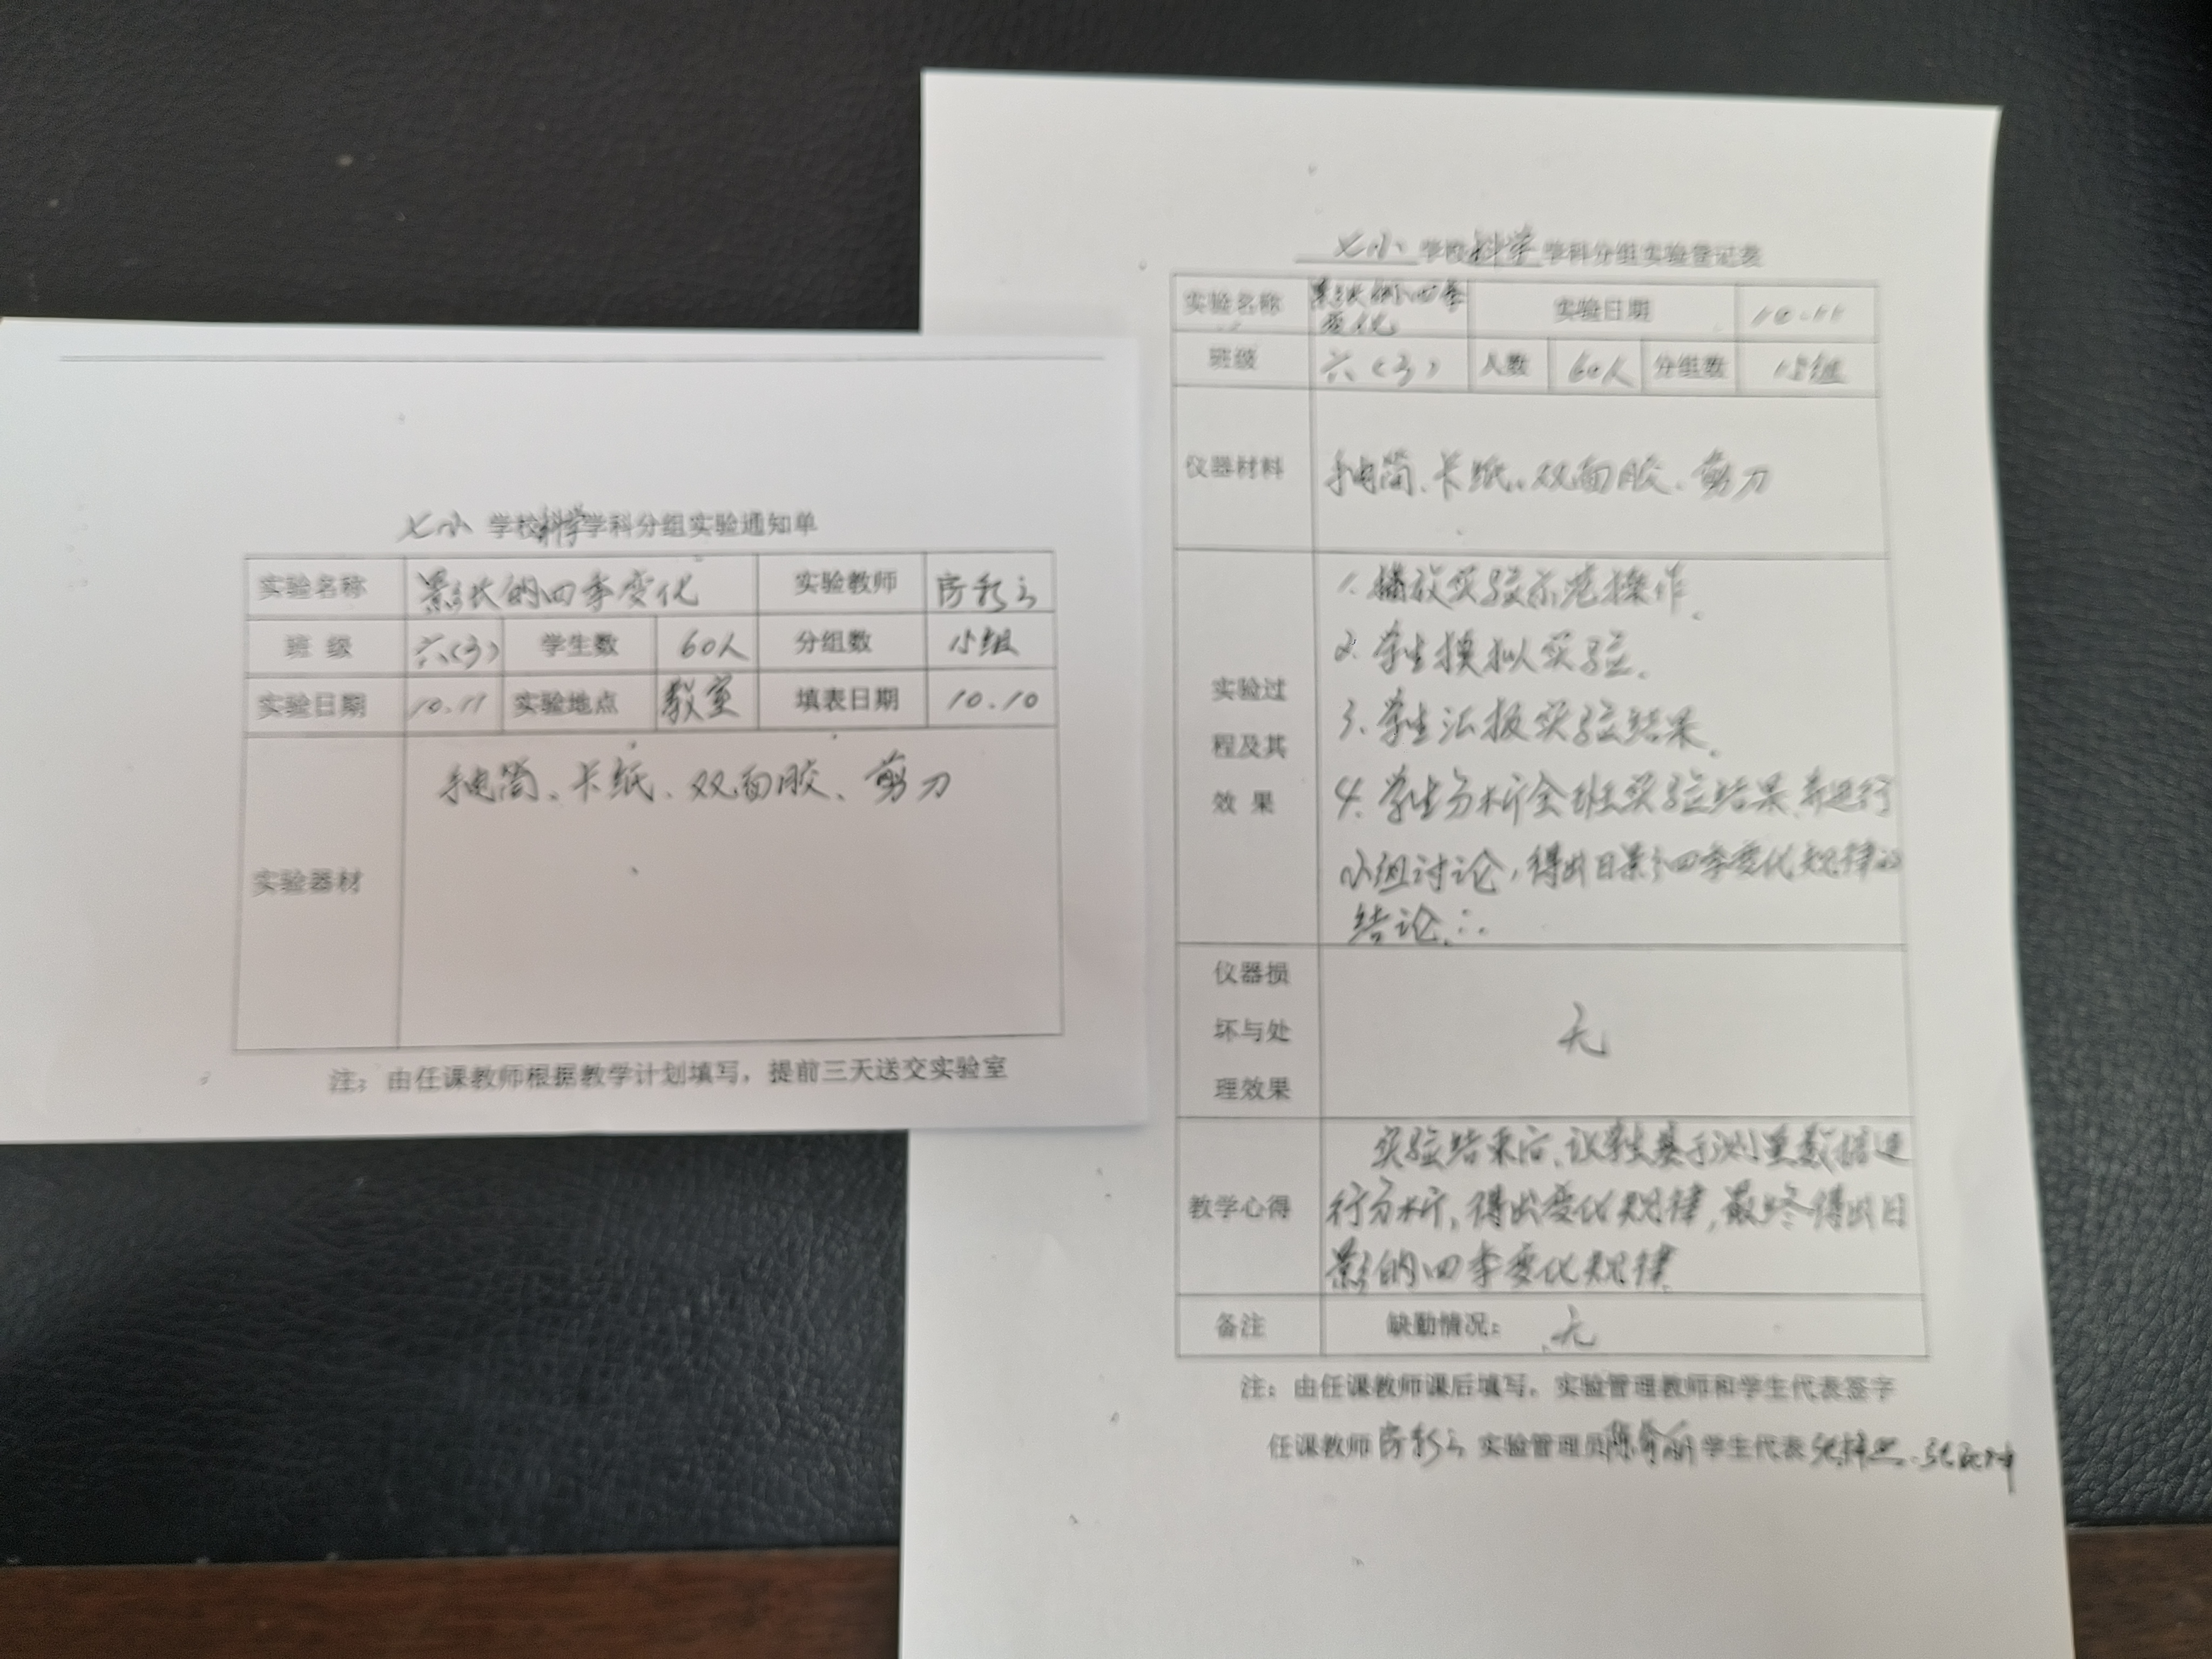 七小 学校科学学科分组实验通知单
实验名称 影长的四季变化 实验教师
班 级 六(3) 学生数 60人 分组数 小组
实验日期 10.11 实验地点 教室 填表日期 10.10
实验器材 手电筒、卡纸、双面胶、剪刀
注：由任课教师根据教学计划填写，提前三天送交实验室
七小 学校科学学科分组实验登记表
实验名称 影长的四季变化 实验日期 10.11
班级 六(3) 人数 60人 分组数 15组
仪器材料 手电筒、卡纸、双面胶、剪刀
实验过程及其效果
1. 播放实验示范操作。
2. 学生模拟实验。
3. 学生汇报实验结果。
4. 学生分析全班实验结果,并进行
小组讨论，得出日影四季变化规律的
结论。
仪器损坏与处理效果 无
教学心得
实验结束后,让学生基于测量数据进
行分析,得出变化规律,最终得出日
影的四季变化规律
备注 缺勤情况： 无
注：由任课教师课后填写，实验管理教师和学生代表签字
任课教师 实验管理员 学生代表